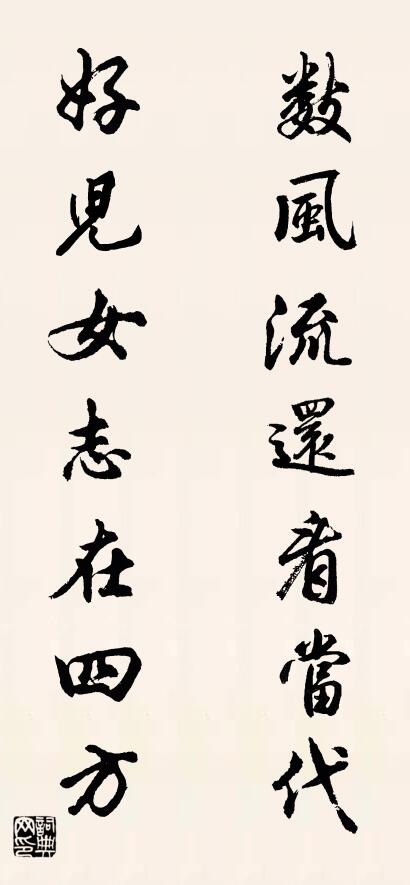 數風流還看當代
好兒女志在四方
詞典网印